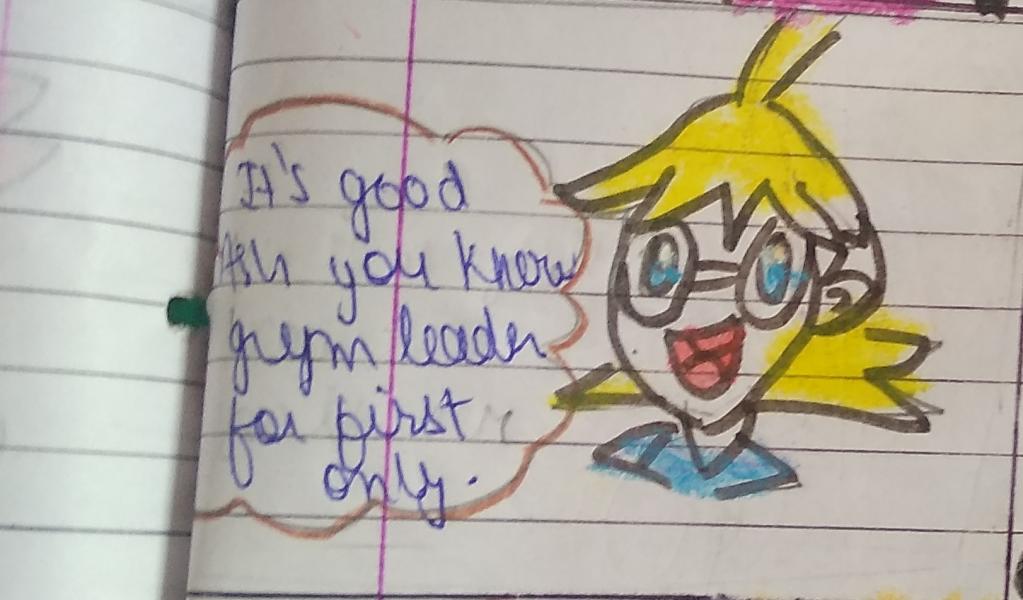 It's good
Ash you know
gym leader
for first
only.